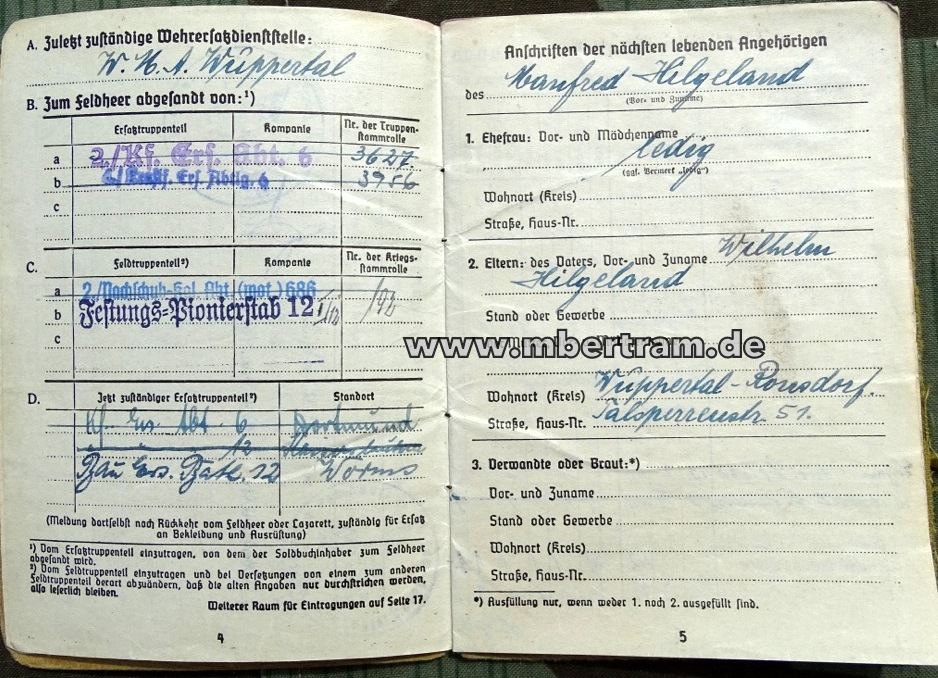 A. Zuletzt zuständige Wehrersatzdienststelle:
W. M. A. Wuppertal
B. Zum Feldheer abgesandt von:¹)
Ersatztruppenteil Kompanie Nr. der Truppen-
stammrolle
a 2./Kf. Ers. Abt. 6 3627
b Ers. Abtlg. 6 3956
c
C. Feldtruppenteil²) Kompanie Nr. der Kriegs-
stammrolle
a 2./Nachschub-Kol. Abt. (mot) 686
b Festungs-Pionierstab 12 /92
c
D. Jetzt zuständiger Ersatztruppenteil²) Standort
Kf. Ers. Abt. 6 Dortmund
" " " 12
Bau Ers. Batl. 12 Worms
(Meldung dortselbst nach Rückkehr vom Feldheer oder Lazarett, zuständig für Ersatz
an Bekleidung und Ausrüstung)
¹) Vom Ersatztruppenteil einzutragen, von dem der Soldbuchinhaber zum Feldheer
abgesandt wird.
²) Vom Feldtruppenteil einzutragen und bei Versetzungen von einem zum anderen
Feldtruppenteil derart abzuändern, daß die alten Angaben nur durchstrichen werden,
also leserlich bleiben.
Weiterer Raum für Eintragungen auf Seite 17.
4
Anschriften der nächsten lebenden Angehörigen
des Manfred Hilgeland
(Vor- und Zuname)
1. Ehefrau: Vor- und Mädchenname
ledig
(ggf. Vermerk „ledig“)
Wohnort (Kreis)
Straße, Haus-Nr.
2. Eltern: des Vaters, Vor- und Zuname Wilhelm
Hilgeland
Stand oder Gewerbe
www.mbertram.de
Wohnort (Kreis) Wuppertal-Ronsdorf.
Straße, Haus-Nr. Talsperrenstr. 51.
3. Verwandte oder Braut:*)
Vor- und Zuname
Stand oder Gewerbe
Wohnort (Kreis)
Straße, Haus-Nr.
*) Ausfüllung nur, wenn weder 1. noch 2. ausgefüllt sind.
5